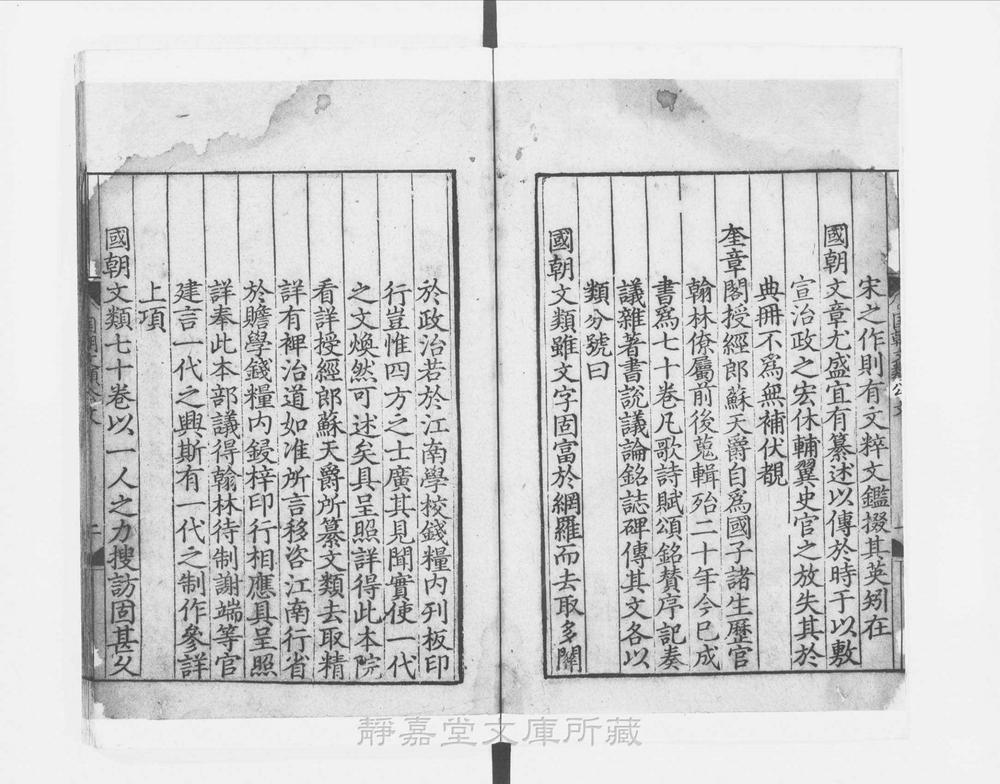 宋之作則有文粹文鑑掇其英矧在
國朝文章尤盛宜有纂述以傳於時于以敷
宣治政之宏休輔翼史官之放失其於
典冊不爲無補伏覩
奎章閣授經郎蘇天爵自爲國子諸生歷官
翰林僚屬前後蒐輯殆二十年今已成
書爲七十卷凡歌詩賦頌銘贊序記奏
議雜著書說議論銘誌碑傳其文各以
類分號曰
國朝文類雖文字固富於網羅而去取多關
於政治若於江南學校錢糧內刋板印
行豈惟四方之士廣其見聞實使一代
之文煥然可述矣具呈照詳得此本院
看詳授經郎蘇天爵所纂文類去取精
詳有裨治道如准所言移咨江南行省
於贍學錢糧內鋟梓印行相應具呈照
詳奉此本部議得翰林待制謝端等官
建言一代之興斯有一代之制作參詳
上項
國朝文類七十卷以一人之力搜訪固甚久
靜嘉堂文庫所藏